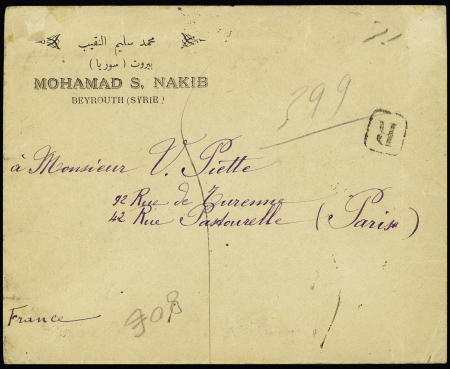 محمد سليم النقيب
بيروت (سوريا)
MOHAMAD S, NAKIB
BEYROUTH (SYRIE)
399
R
à Monsieur V. Piette
92 Rue de Turenne
42 Rue Pastourelle (Paris)
France
908